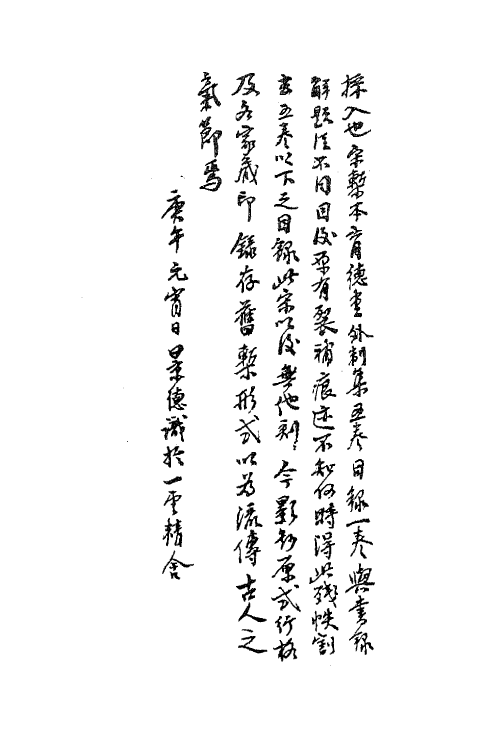 採入也宋槧本育德堂外制集五卷目錄一卷與書錄
解題俱不同目後原有裂補痕迹不知何時得此殘帙割
去五卷以下之目錄此宋以後無他刻今影鈔原式行格
及各家藏印錄存舊槧形式以為流傳古人之
氣節焉
庚午元宵日景德識於一雲精舍